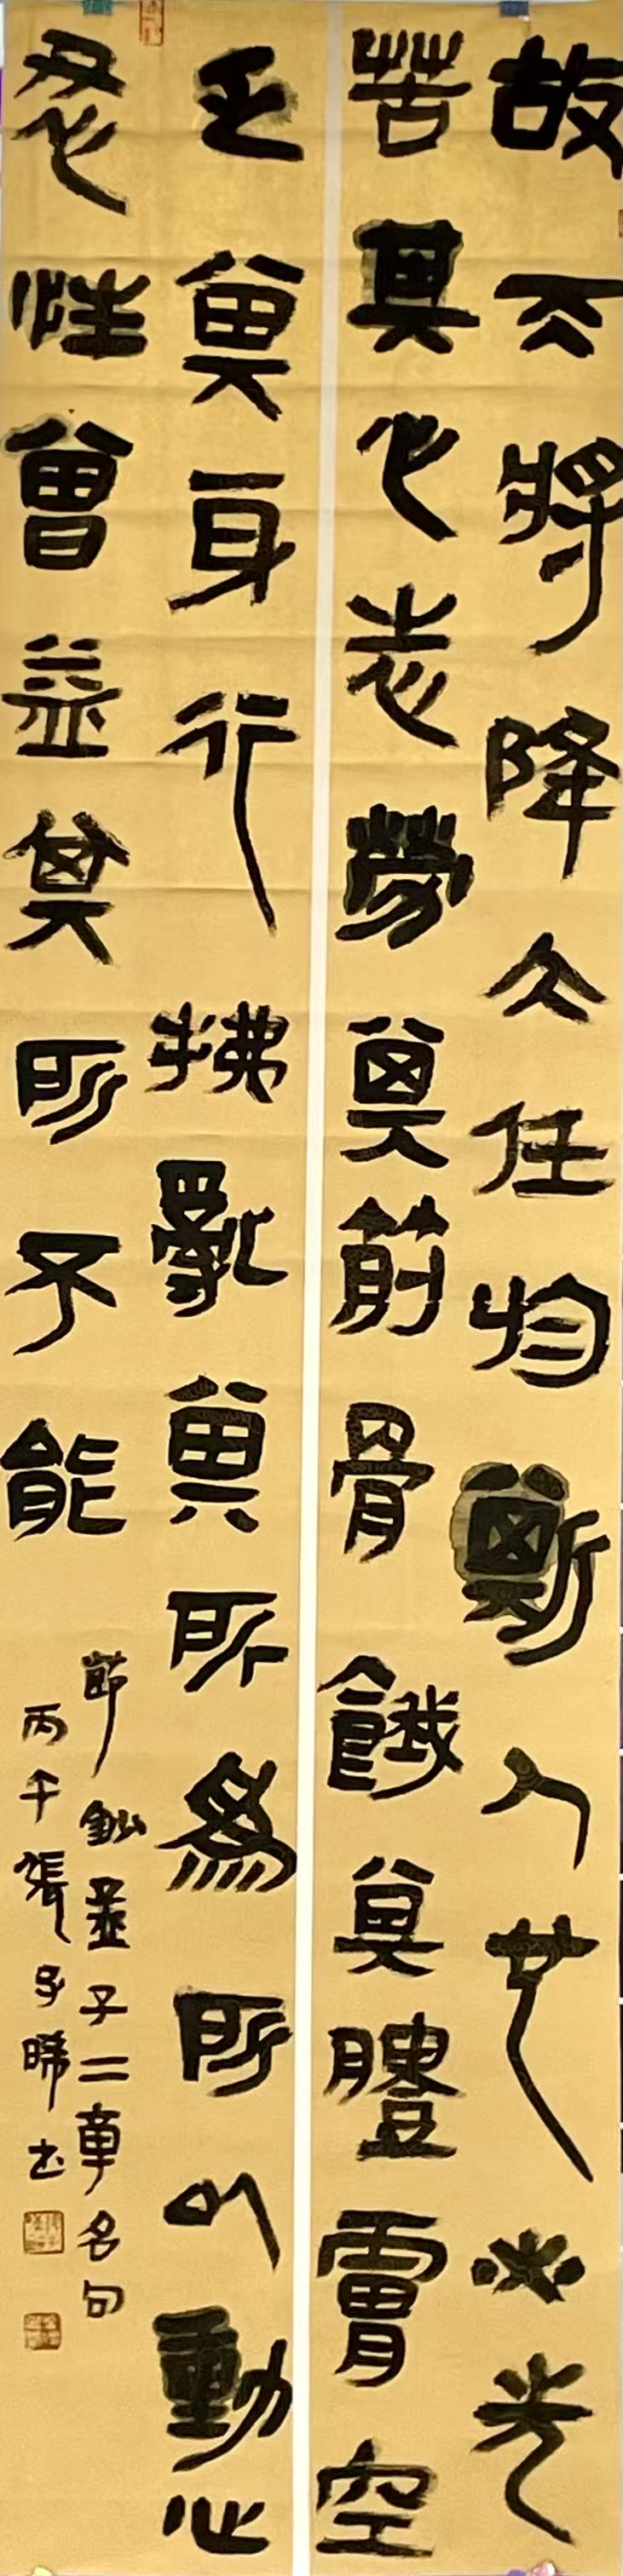 故天將降大任於斯人也必先
苦其心志勞其筋骨餓其體膚空
乏其身行拂亂其所爲所以動心
忍性曾益其所不能
節錄孟子二章名句
丙午張子晞書